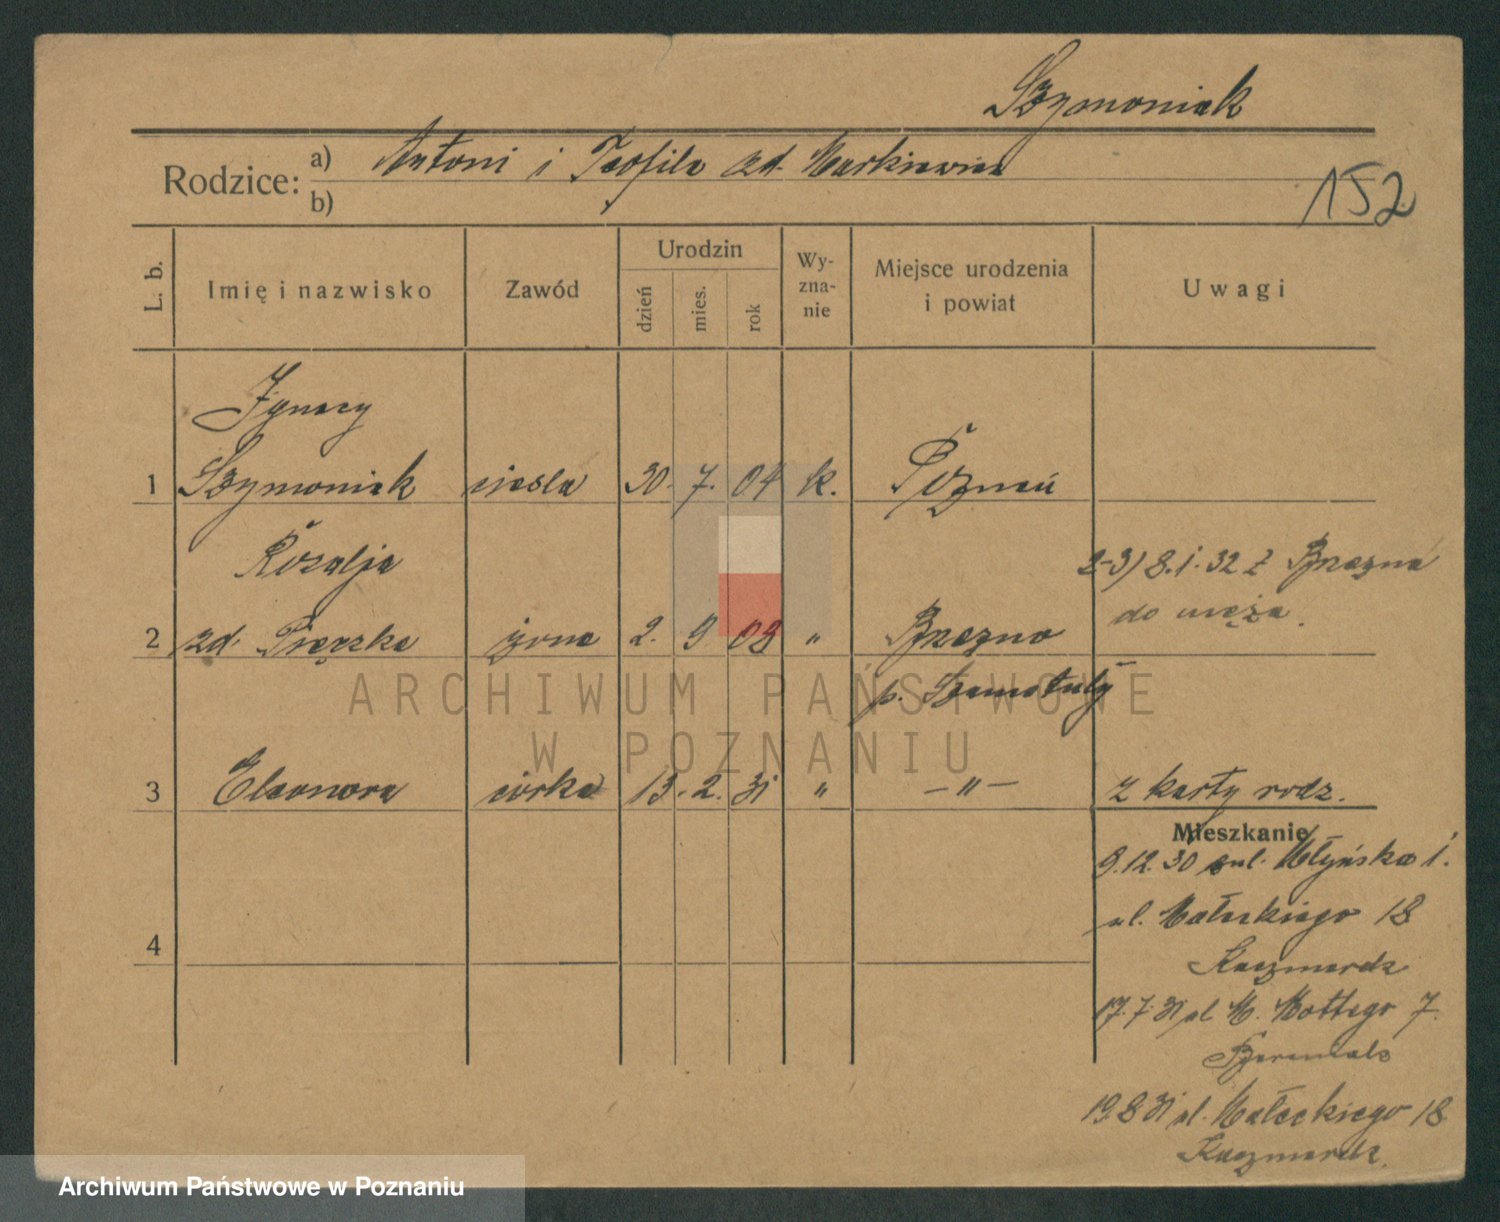 Szymoniak
Rodzice: a) Antoni i Teofila zd. Markiewicz
b)
152
L. b.
Imię i nazwisko
Zawód
Urodzin
dzień
mies.
rok
Wy-
zna-
nie
Miejsce urodzenia
i powiat
Uwagi
Ignacy
1 Szymoniak cieśla 30. 7. 04 k. Poznań
Rozalja
2-3) 8.1.32 z Brzezna
do męża.
2 zd. Pierzka żona 2. 9 03 " Brzezno
p. Szamotuły
3 Eleonora córka 13. 2. 31 " –"– z karty rodz.
Mieszkanie
9.12.30 ul. Młyńska 1.
4
ul. Małeckiego 18
Kaczmarek
17.7.31 ul. M. Mottego 7.
19.8.31 ul. Małeckiego 18
Kaczmarek
ARCHIWUM PAŃSTWOWE
W POZNANIU
Archiwum Państwowe w Poznaniu